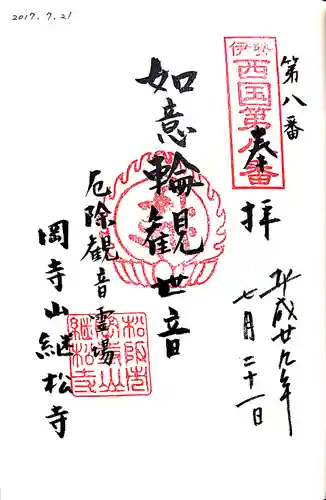 2017.7.21
第八番
伊勢
西国第八番
奉拝
平成廿九年
七月二十一日
如意輪観世音
厄除観音霊場
岡寺山継松寺
松阪市
岡寺山
継松寺